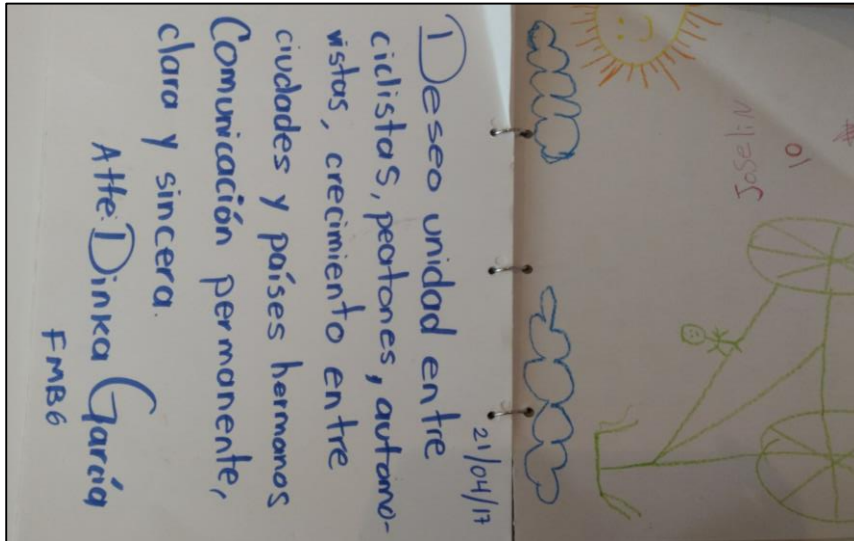 Joselin
10
21/04/17
Deseo unidad entre
ciclistas, peatones, automo-
vistas, crecimiento entre
ciudades y países hermanos
Comunicación permanente,
clara y sincera.
Atte: Dinka García
FMB6